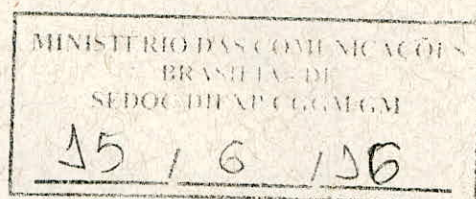 MINISTÉRIO DAS COMUNICAÇÕES
BRASÍLIA - DF
SEDOC/DIEXP/CGGM/GM
15 / 6 / 16